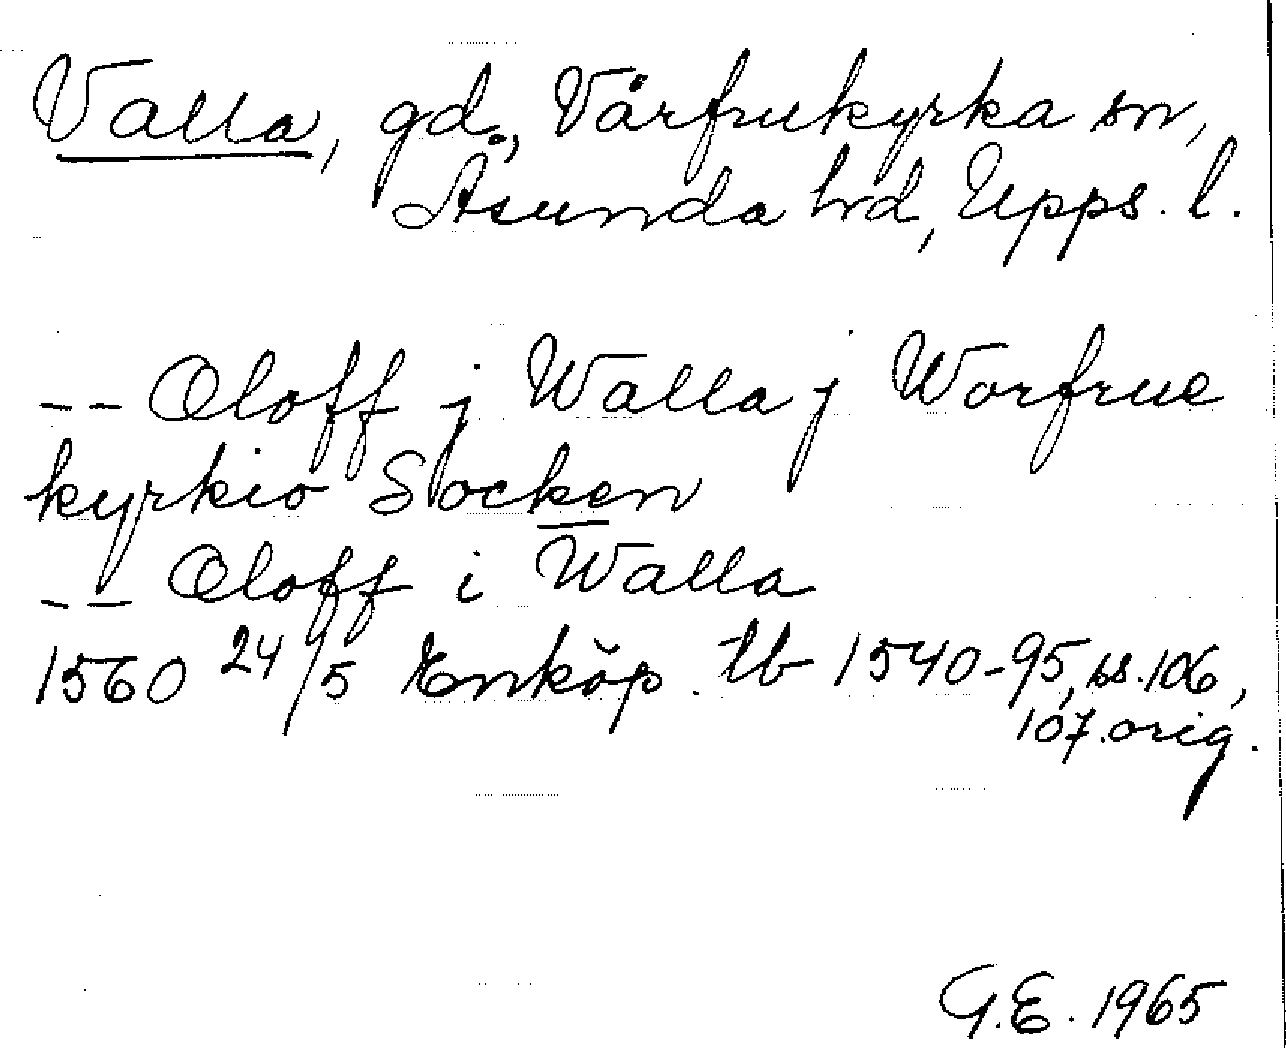 Valla, gd, Vårfrukyrka sn,
Åsunda hd, Upps. l.
-- Oloff j Walla j Worfrue
kyrkio Socken
-- Oloff i Walla
1560 24/5 Enköp. tb 1540-95, ss. 106,
107. orig.
G.E. 1965